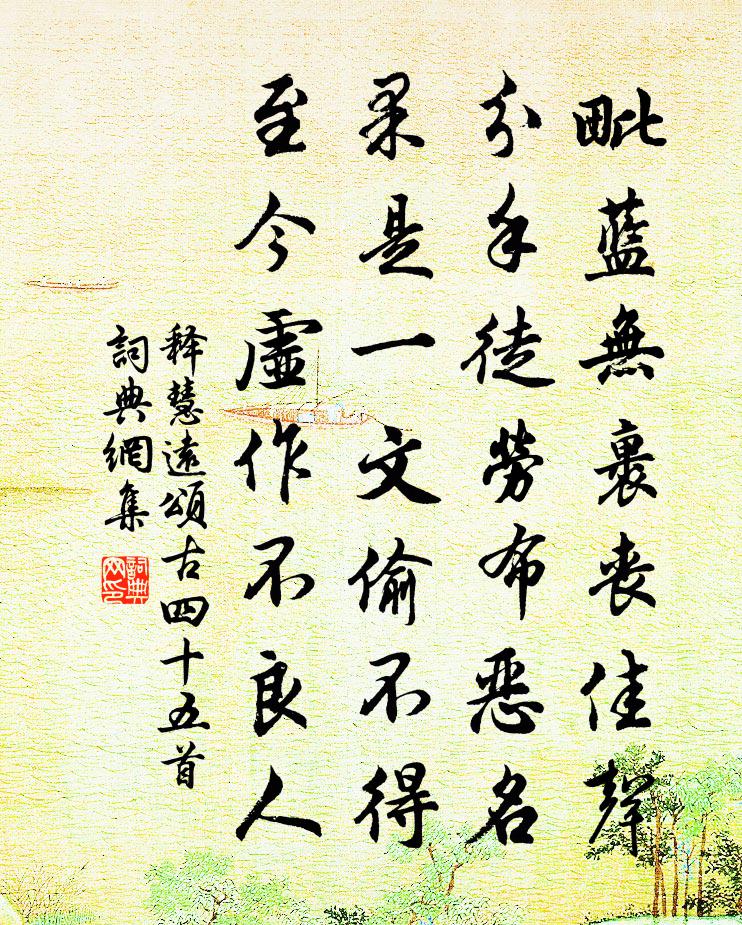 毗藍無裹喪佳聲
分手徒勞布惡名
果是一文偷不得
至今虛作不良人
释慧遠頌古四十五首
詞典網集
詞典网印